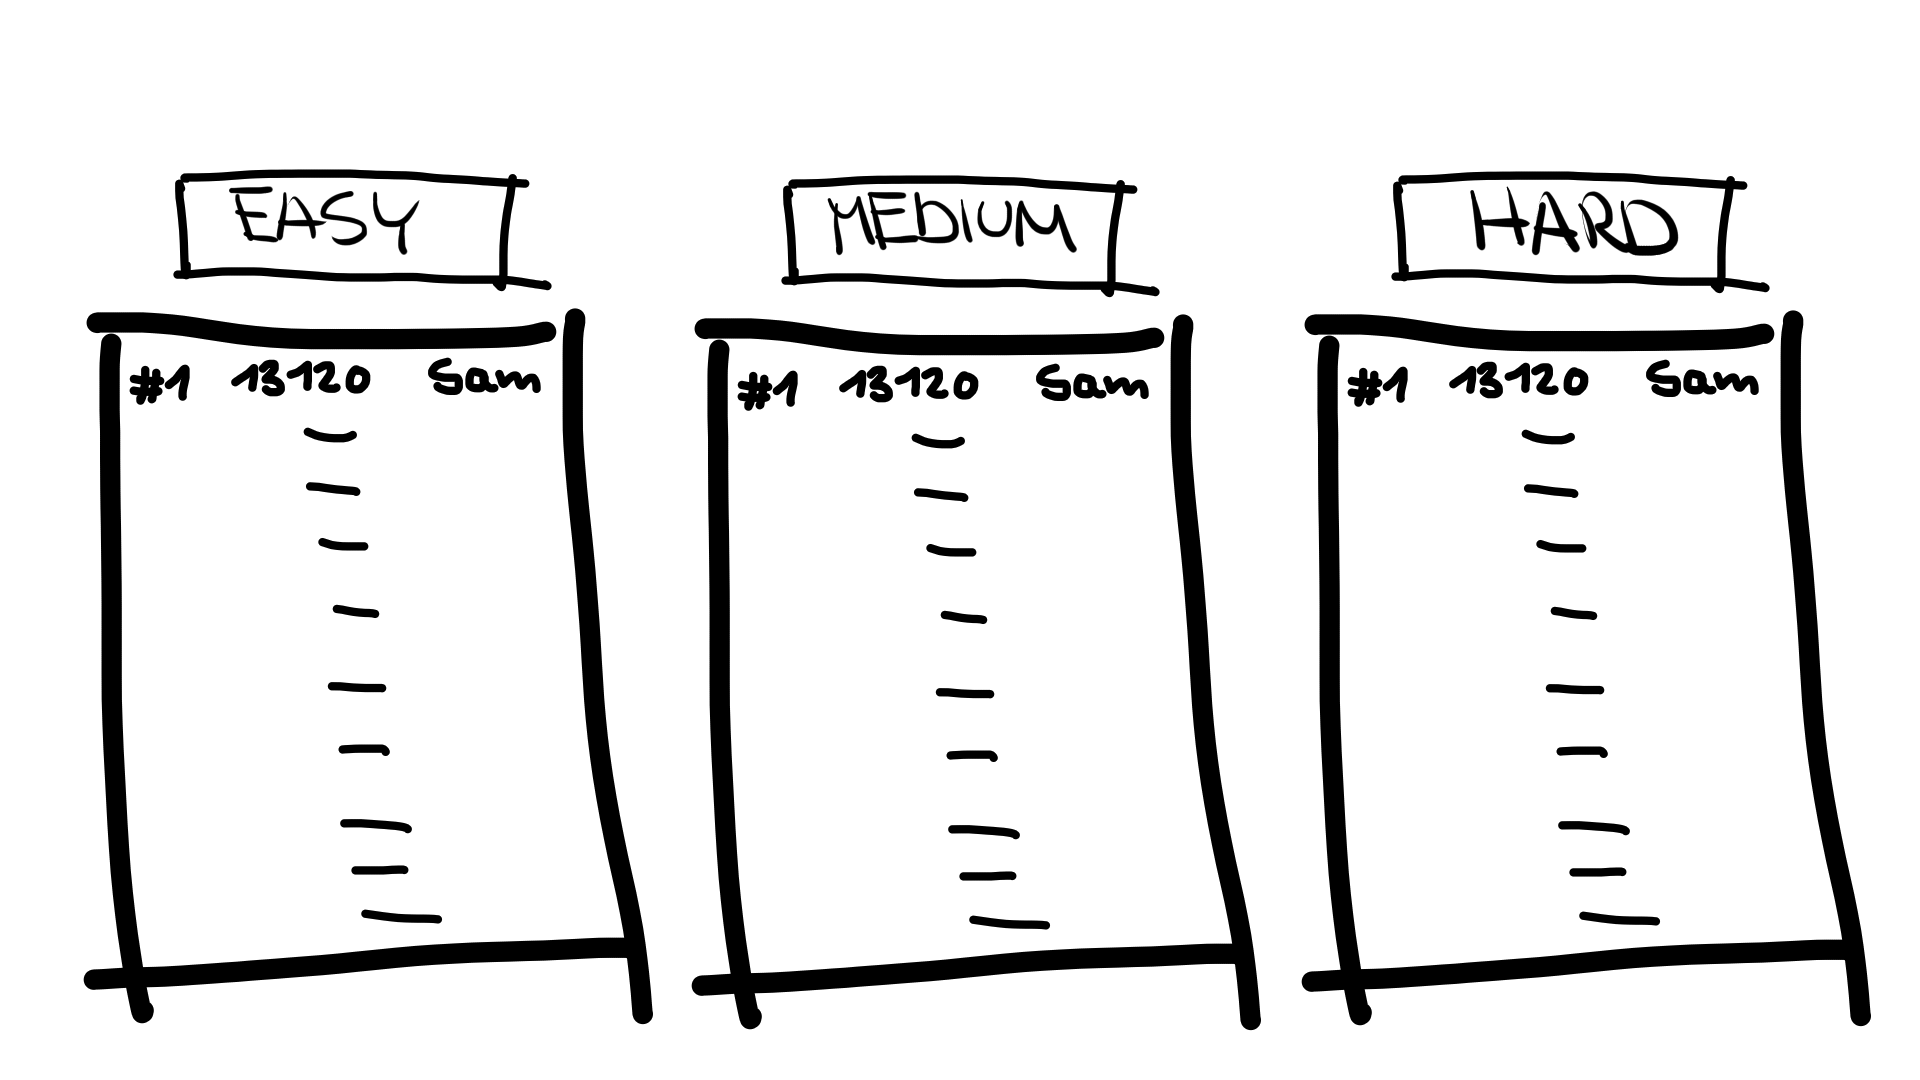 EASY
#1 13120 Sam
MEDIUM
#1 13120 Sam
HARD
#1 13120 Sam